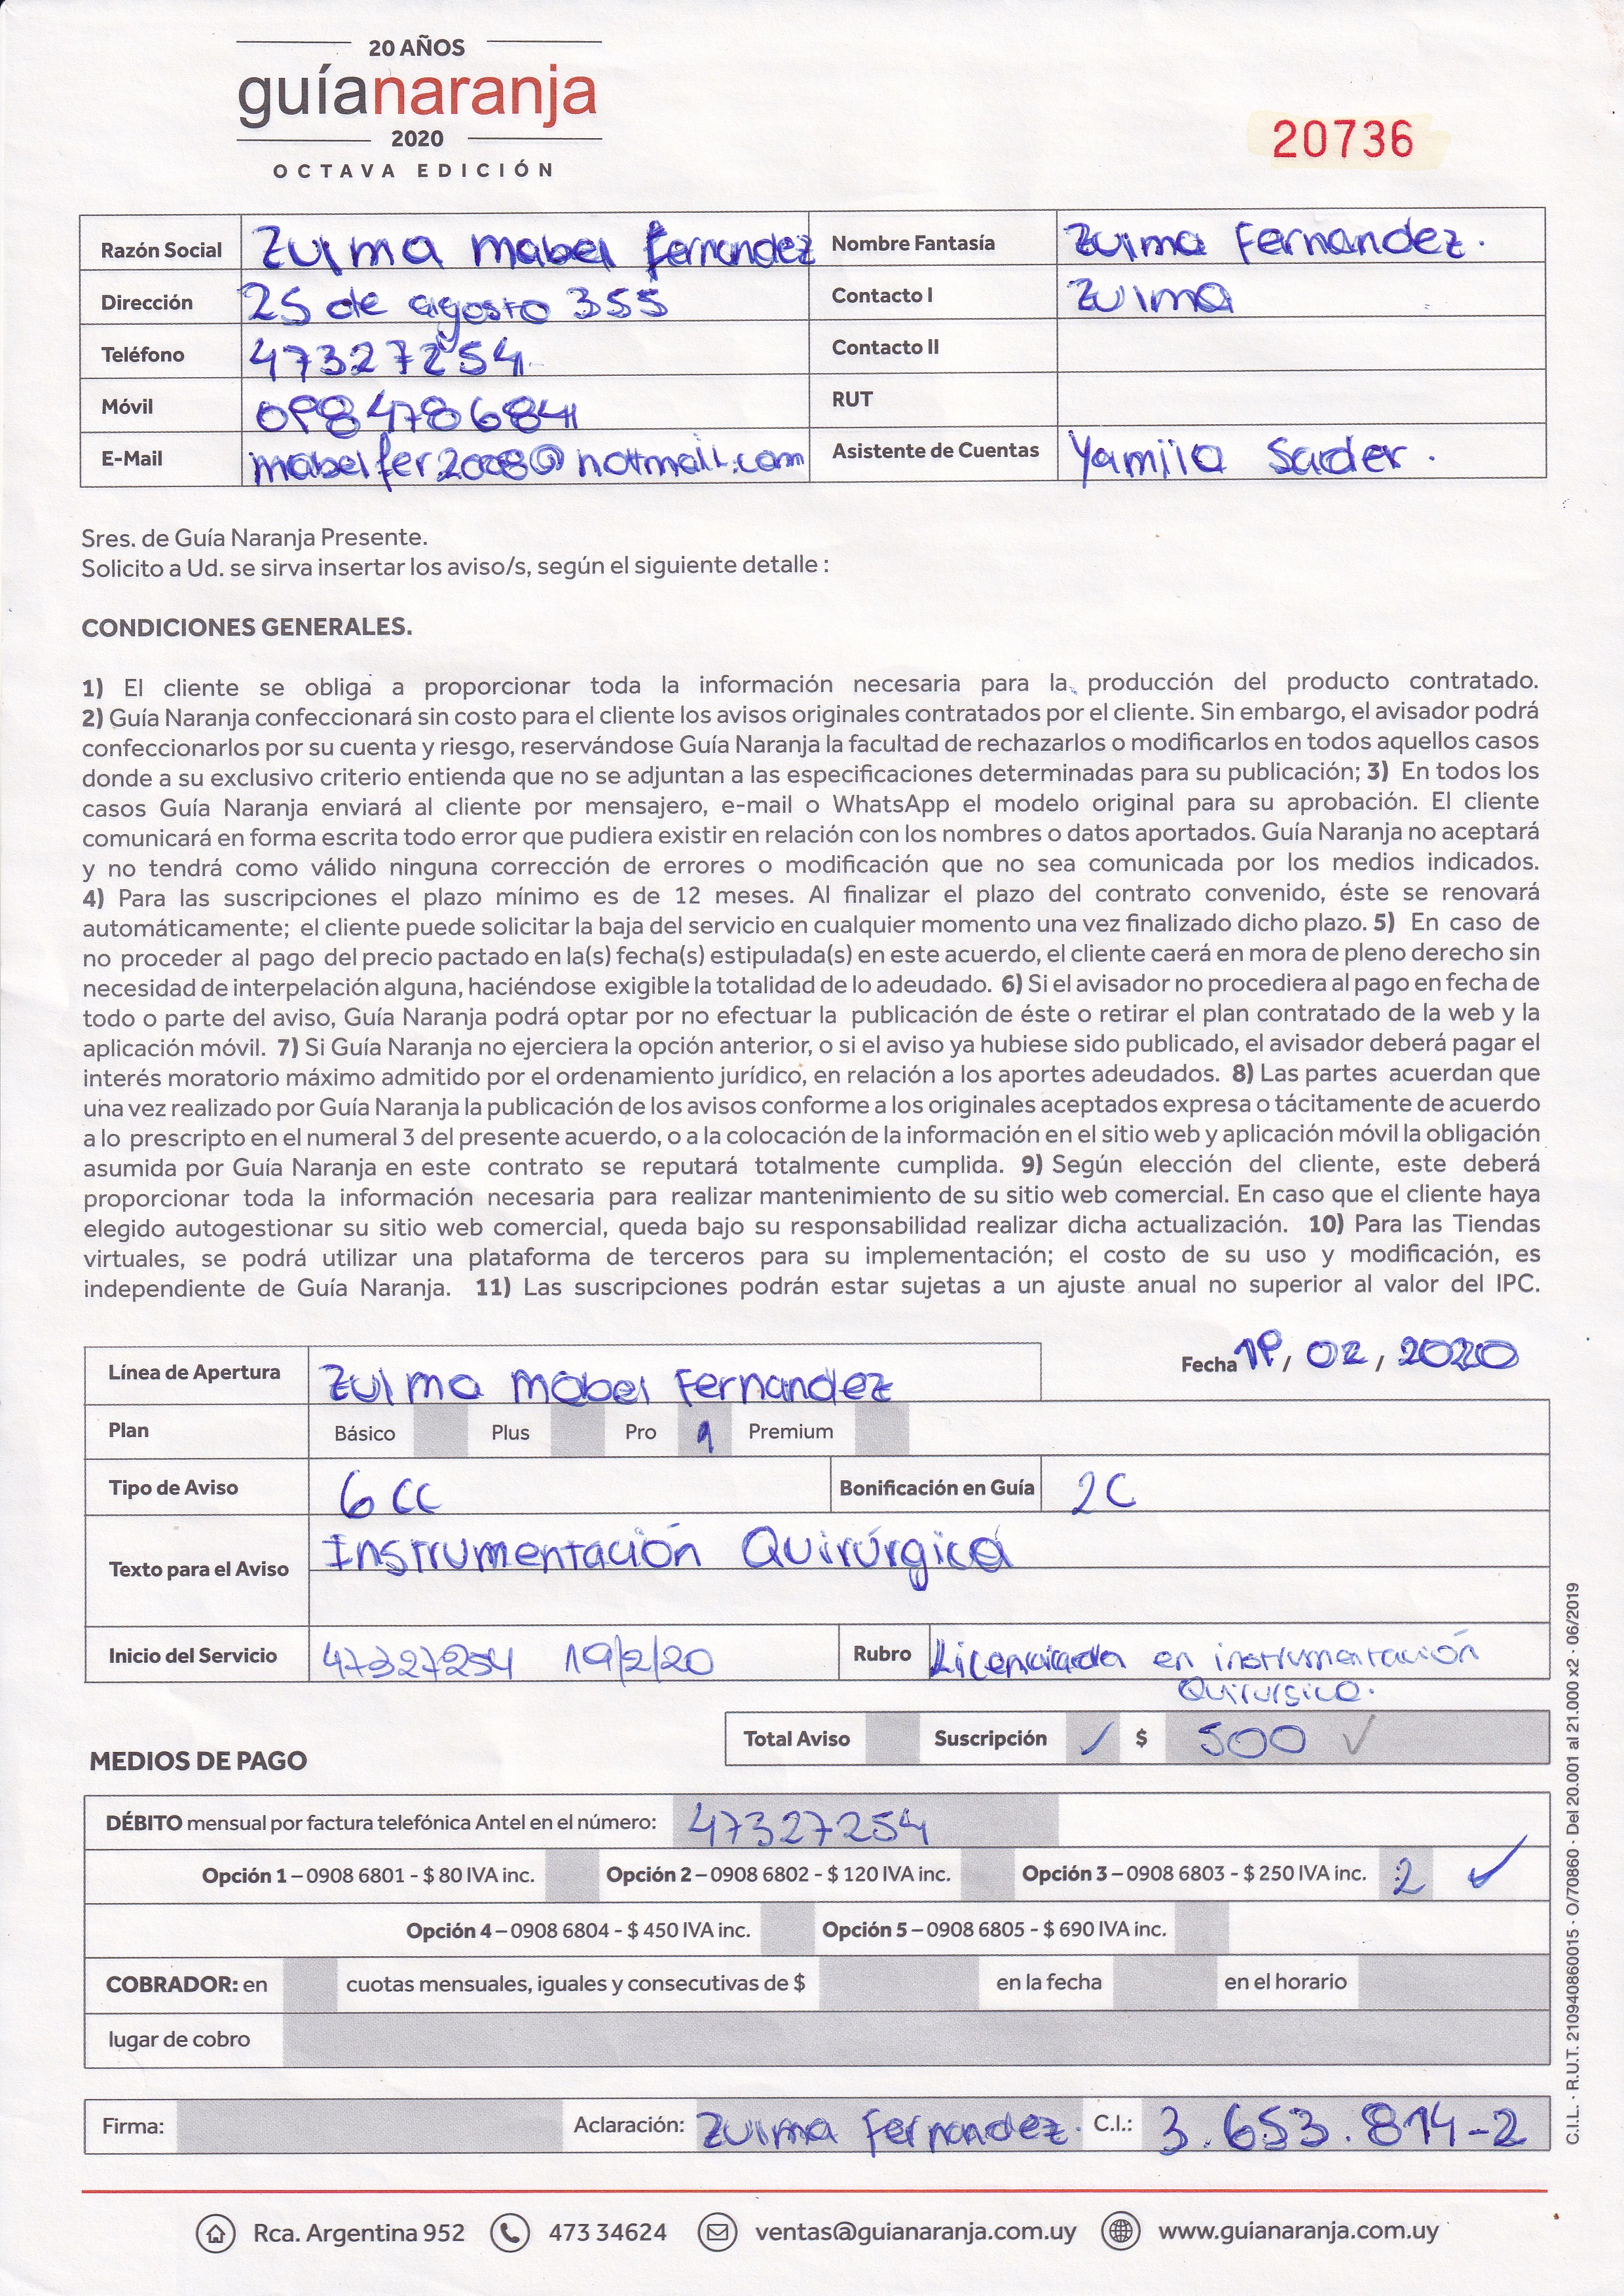 20 AÑOS
guíanaranja
2020
OCTAVA EDICIÓN
20736
Razón Social Zulma Mabel Fernandez Nombre Fantasía Zulma Fernandez.
Dirección 25 de agosto 355 Contacto I Zulma
Teléfono 47327254 Contacto II
Móvil 098478684 RUT
E-Mail mabelfer2008@hotmail.com Asistente de Cuentas Yamila Sader.
Sres. de Guía Naranja Presente.
Solicito a Ud. se sirva insertar los aviso/s, según el siguiente detalle :
CONDICIONES GENERALES.
1) El cliente se obliga a proporcionar toda la información necesaria para la producción del producto contratado.
2) Guía Naranja confeccionará sin costo para el cliente los avisos originales contratados por el cliente. Sin embargo, el avisador podrá
confeccionarlos por su cuenta y riesgo, reservándose Guía Naranja la facultad de rechazarlos o modificarlos en todos aquellos casos
donde a su exclusivo criterio entienda que no se adjuntan a las especificaciones determinadas para su publicación; 3) En todos los
casos Guía Naranja enviará al cliente por mensajero, e-mail o WhatsApp el modelo original para su aprobación. El cliente
comunicará en forma escrita todo error que pudiera existir en relación con los nombres o datos aportados. Guía Naranja no aceptará
y no tendrá como válido ninguna corrección de errores o modificación que no sea comunicada por los medios indicados.
4) Para las suscripciones el plazo mínimo es de 12 meses. Al finalizar el plazo del contrato convenido, éste se renovará
automáticamente; el cliente puede solicitar la baja del servicio en cualquier momento una vez finalizado dicho plazo. 5) En caso de
no proceder al pago del precio pactado en la(s) fecha(s) estipulada(s) en este acuerdo, el cliente caerá en mora de pleno derecho sin
necesidad de interpelación alguna, haciéndose exigible la totalidad de lo adeudado. 6) Si el avisador no procediera al pago en fecha de
todo o parte del aviso, Guía Naranja podrá optar por no efectuar la publicación de éste o retirar el plan contratado de la web y la
aplicación móvil. 7) Si Guía Naranja no ejerciera la opción anterior, o si el aviso ya hubiese sido publicado, el avisador deberá pagar el
interés moratorio máximo admitido por el ordenamiento jurídico, en relación a los aportes adeudados. 8) Las partes acuerdan que
una vez realizado por Guía Naranja la publicación de los avisos conforme a los originales aceptados expresa o tácitamente de acuerdo
a lo prescripto en el numeral 3 del presente acuerdo, o a la colocación de la información en el sitio web y aplicación móvil la obligación
asumida por Guía Naranja en este contrato se reputará totalmente cumplida. 9) Según elección del cliente, este deberá
proporcionar toda la información necesaria para realizar mantenimiento de su sitio web comercial. En caso que el cliente haya
elegido autogestionar su sitio web comercial, queda bajo su responsabilidad realizar dicha actualización. 10) Para las Tiendas
virtuales, se podrá utilizar una plataforma de terceros para su implementación; el costo de su uso y modificación, es
independiente de Guía Naranja. 11) Las suscripciones podrán estar sujetas a un ajuste anual no superior al valor del IPC.
Fecha 19/ 02 / 2020
Línea de Apertura Zulma Mabel Fernandez
Plan Básico Plus Pro 1 Premium
Tipo de Aviso 6 CC Bonificación en Guía 2C
Texto para el Aviso Instrumentación Quirúrgica
Inicio del Servicio 47327254 19/2/20 Rubro Licenciada en instrumentación
Quirurgica.
Total Aviso Suscripción ✓ $ 500 ✓
MEDIOS DE PAGO
DÉBITO mensual por factura telefónica Antel en el número: 47327254
Opción 1 – 0908 6801 - $ 80 IVA inc. Opción 2 – 0908 6802 - $ 120 IVA inc. Opción 3 – 0908 6803 - $ 250 IVA inc. 2 ✓
Opción 4 – 0908 6804 - $ 450 IVA inc. Opción 5 – 0908 6805 - $ 690 IVA inc.
COBRADOR: en cuotas mensuales, iguales y consecutivas de $ en la fecha en el horario
lugar de cobro
Firma: Aclaración: Zulma Fernandez. C.I.: 3.653.814-2
C.I.L. · R.U.T. 210940860015 · O/70860 · Del 20.001 al 21.000 x2 · 06/2019
Rca. Argentina 952 473 34624 ventas@guianaranja.com.uy www.guianaranja.com.uy